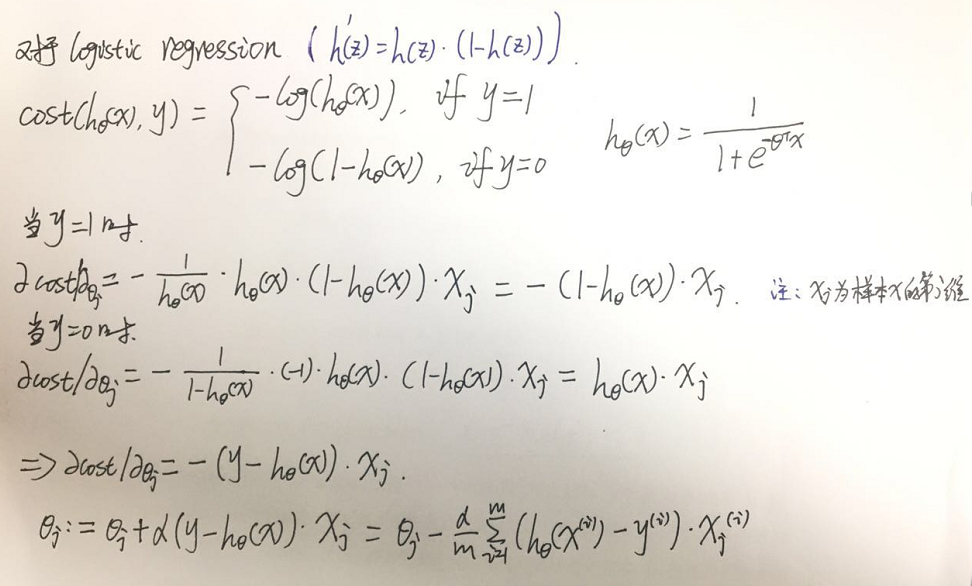 对于 logistic regression (h'(z)=h(z)·(1-h(z))).
cost(hθ(x), y) = { -log(hθ(x)), if y=1
-log(1-hθ(x)), if y=0
hθ(x) = 1/(1+e^(-θᵀx))
当y=1时.
∂cost/∂θj = - 1/hθ(x) · hθ(x)·(1-hθ(x))·Xj = -(1-hθ(x))·Xj. 注: Xj为样本X的第j维
当y=0时.
∂cost/∂θj = - 1/(1-hθ(x)) ·(-1)·hθ(x)·(1-hθ(x))·Xj = hθ(x)·Xj
=> ∂cost/∂θj = -(y-hθ(x))·Xj.
θj := θj + α(y-hθ(x))·Xj = θj - α/m Σ_{i=1}^{m} (hθ(x^(i)) - y^(i))·Xj^(i)